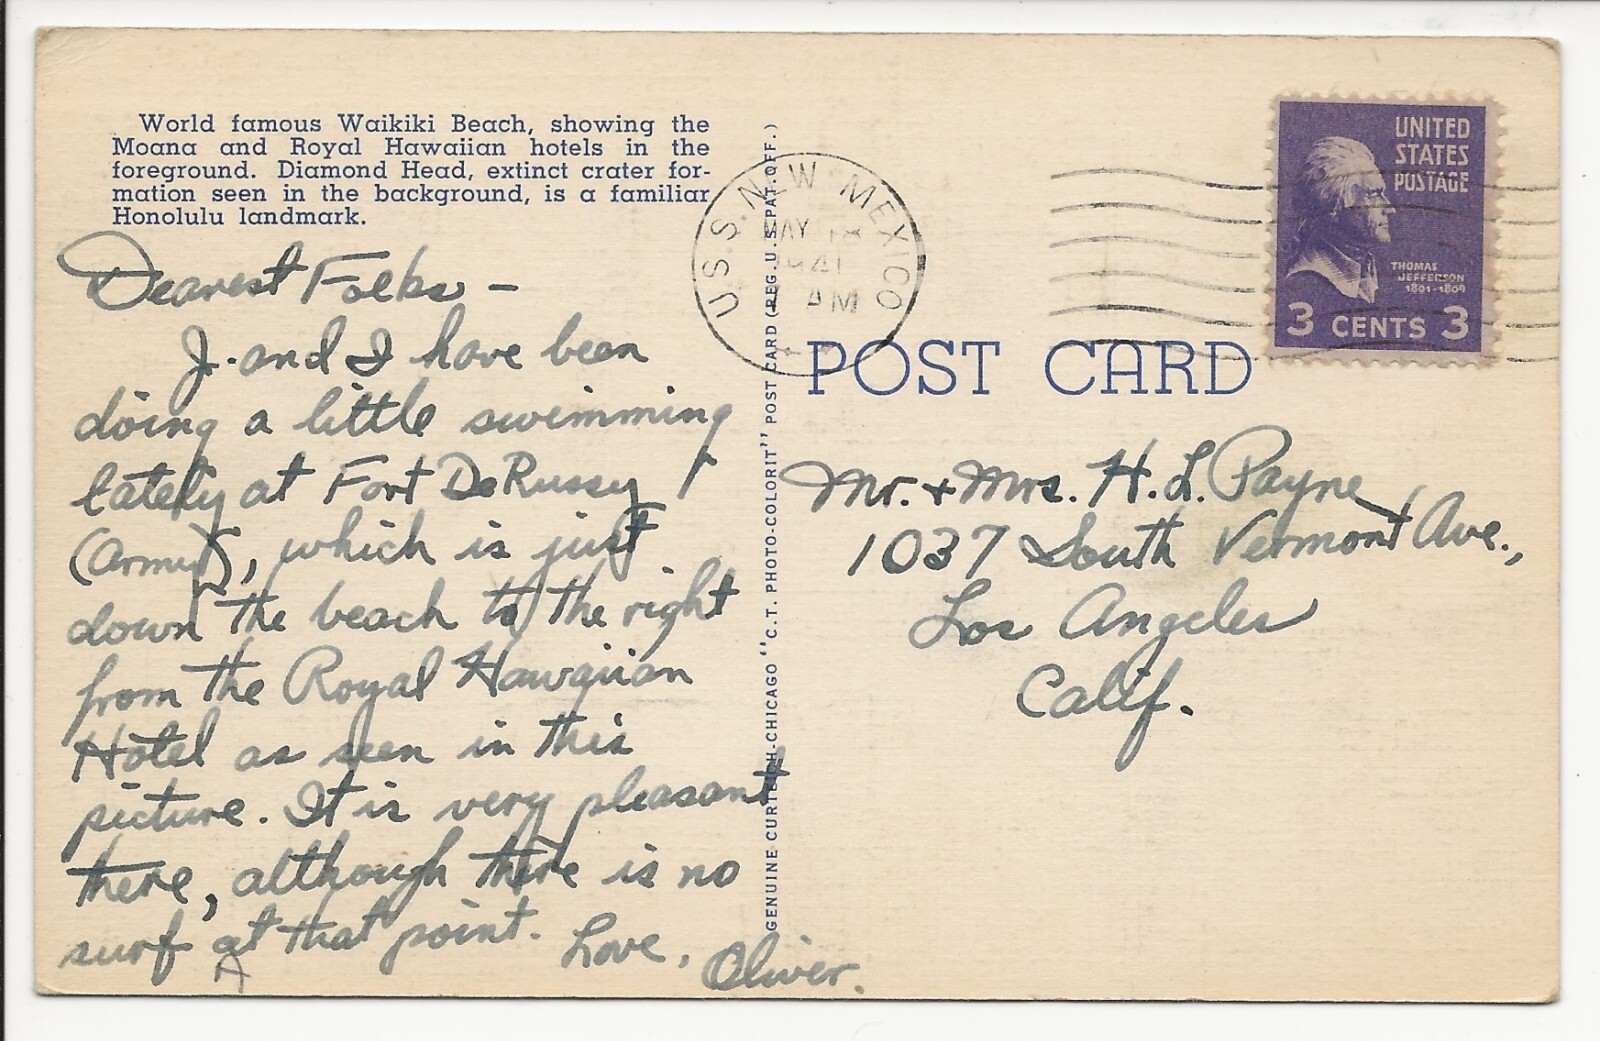 World famous Waikiki Beach, showing the
Moana and Royal Hawaiian hotels in the
foreground. Diamond Head, extinct crater for-
mation seen in the background, is a familiar
Honolulu landmark.
Dearest Folks –
J. and I have been
doing a little swimming
lately at Fort DeRussy
(Army), which is just
down the beach to the right
from the Royal Hawaiian
Hotel as seen in this
picture. It is very pleasant
there, although there is no
surf at that point. Love,
Oliver.
GENUINE CURTEICH-CHICAGO "C.T. PHOTO-COLORIT" POST CARD (REG. U.S. PAT. OFF.)
U.S.S. NEW MEXICO
MAY 18
1941
AM
UNITED
STATES
POSTAGE
THOMAS
JEFFERSON
1801-1809
3 CENTS 3
POST CARD
Mr. + Mrs. H. L. Payne
1037 South Vermont Ave.,
Los Angeles
Calif.